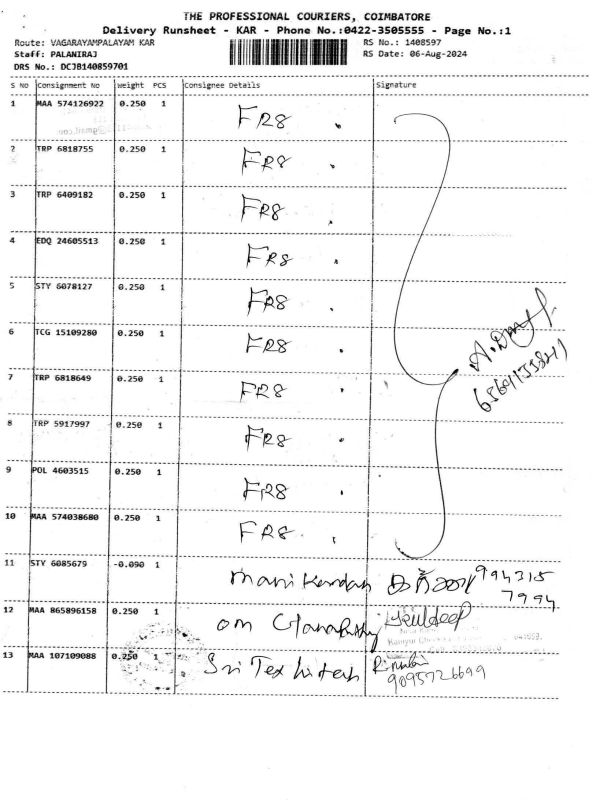 THE PROFESSIONAL COURIERS, COIMBATORE
Delivery Runsheet - KAR - Phone No.:0422-3505555 - Page No.:1
Route: VAGARAYAMPALAYAM KAR RS No.: 1408597
Staff: PALANIRAJ RS Date: 06-Aug-2024
DRS No.: DCJB140859701
S No Consignment No Weight PCS Consignee Details Signature
1 MAA 574126922 0.250 1 FR8
2 TRP 6818755 0.250 1 FR8
3 TRP 6409182 0.250 1 FR8
4 EDQ 24605513 0.250 1 FR8
5 STY 6078127 0.250 1 FR8
6 TCG 15109280 0.250 1 FR8
7 TRP 6818649 0.250 1 FR8
8 TRP 5917997 0.250 1 FR8
9 POL 4603515 0.250 1 FR8
10 MAA 574038680 0.250 1 FR8
11 STY 6085679 -0.090 1 Manikandan 994315
7994
12 MAA 865896158 0.250 1 om Ganapathy Kuldeep
13 MAA 107109088 0.250 1 Sri Tex
9095726699